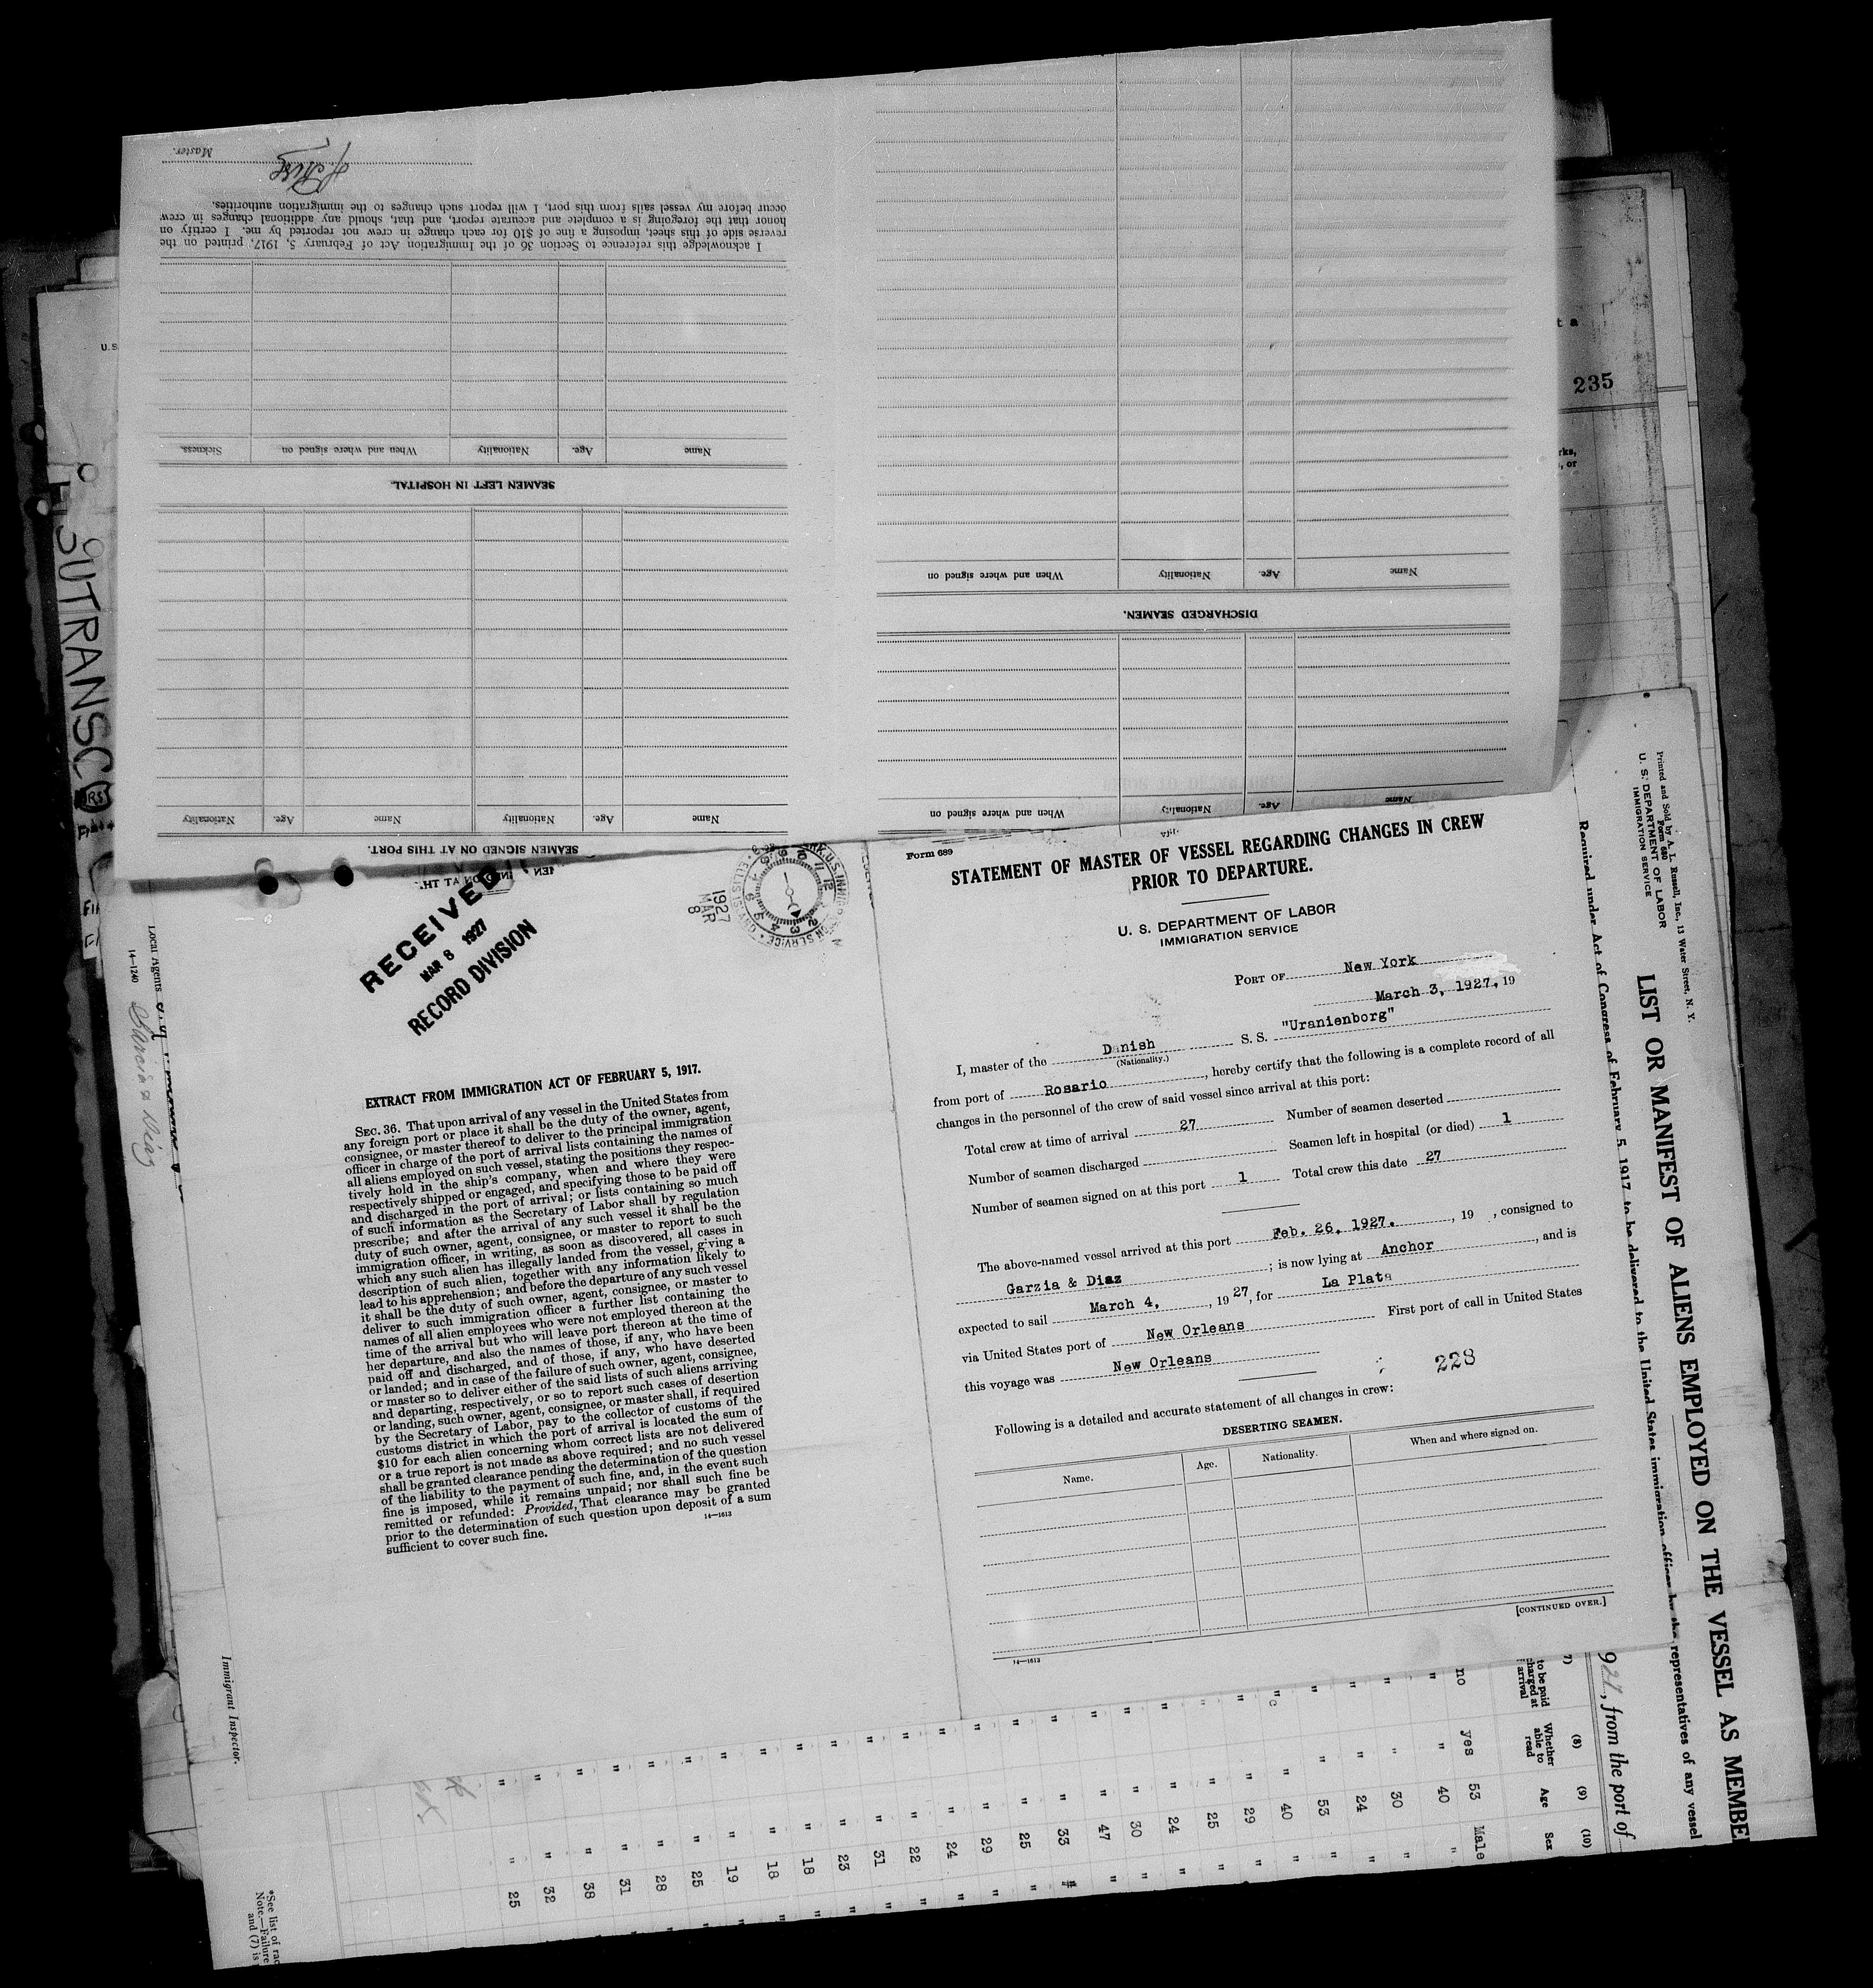 Master.
I acknowledge this reference to Section 36 of the Immigration Act of February 5, 1917, printed on the
reverse side of this sheet, imposing a fine of $10 for each change in crew not reported by me. I certify on
honor that the foregoing is a complete and accurate report, and that, should any additional changes in crew
occur before my vessel sails from this port, I will report such changes to the immigration authorities.
Name Age. Nationality When and where signed on Sickness.
SEAMEN LEFT IN HOSPITAL.
Name Age. Nationality Name Age. Nationality
SEAMEN SIGNED ON AT THIS PORT.
Name Age. Nationality When and where signed on
DISCHARGED SEAMEN.
Name Age. Nationality When and where signed on
RECEIVED
MAR 8 1927
RECORD DIVISION
1927
MAR
8
EXTRACT FROM IMMIGRATION ACT OF FEBRUARY 5, 1917.
SEC. 36. That upon arrival of any vessel in the United States from
any foreign port or place it shall be the duty of the owner, agent,
consignee, or master thereof to deliver to the principal immigration
officer in charge of the port of arrival lists containing the names of
all aliens employed on such vessel, stating the positions they respec-
tively hold in the ship's company, when and where they were
respectively shipped or engaged, and specifying those to be paid off
and discharged in the port of arrival; or lists containing so much
of such information as the Secretary of Labor shall by regulation
prescribe; and after the arrival of any such vessel it shall be the
duty of such owner, agent, consignee, or master to report to such
immigration officer, in writing, as soon as discovered, all cases in
which any such alien has illegally landed from the vessel, giving a
description of such alien, together with any information likely to
lead to his apprehension; and before the departure of any such vessel
it shall be the duty of such owner, agent, consignee, or master to
deliver to such immigration officer a further list containing the
names of all alien employees who were not employed thereon at the
time of the arrival but who will leave port thereon at the time of
her departure, and also the names of those, if any, who have been
paid off and discharged, and of those, if any, who have deserted
or landed; and in case of the failure of such owner, agent, consignee,
or master so to deliver either of the said lists of such aliens arriving
and departing, respectively, or so to report such cases of desertion
or landing, such owner, agent, consignee, or master shall, if required
by the Secretary of Labor, pay to the collector of customs of the
customs district in which the port of arrival is located the sum of
$10 for each alien concerning whom correct lists are not delivered
or a true report is not made as above required; and no such vessel
shall be granted clearance pending the determination of the question
of the liability to the payment of such fine, and, in the event such
fine is imposed, while it remains unpaid; nor shall such fine be
remitted or refunded: Provided, That clearance may be granted
prior to the determination of such question upon deposit of a sum
sufficient to cover such fine.
14—1613
Form 689
STATEMENT OF MASTER OF VESSEL REGARDING CHANGES IN CREW
PRIOR TO DEPARTURE.
U. S. DEPARTMENT OF LABOR
IMMIGRATION SERVICE
PORT OF New York
March 3, 1927. , 19
I, master of the Danish S. S. "Uranienborg"
(Nationality.)
from port of Rosario , hereby certify that the following is a complete record of all
changes in the personnel of the crew of said vessel since arrival at this port:
Total crew at time of arrival 27 Number of seamen deserted
Number of seamen discharged Seamen left in hospital (or died) 1
Number of seamen signed on at this port 1 Total crew this date 27
The above-named vessel arrived at this port Feb. 26, 1927. , 19 , consigned to
Garzia & Diaz ; is now lying at Anchor , and is
expected to sail March 4, , 19 27, for La Plata
via United States port of New Orleans First port of call in United States
this voyage was New Orleans
228
Following is a detailed and accurate statement of all changes in crew:
DESERTING SEAMEN.
Name. Age. Nationality. When and where signed on.
[CONTINUED OVER.]
14—1613
235
SUTRANSCO
Local Agents
Garcia & Diaz
14-1240
Immigrant Inspector.
Printed and Sold by A. L. Russell, Inc., 13 Water Street, N. Y.
Form 680
U. S. DEPARTMENT OF LABOR
IMMIGRATION SERVICE
LIST OR MANIFEST OF ALIENS EMPLOYED ON THE VESSEL AS MEMBE
Required under Act of Congress of February 5, 1917, to be delivered to the United States immigration officer by the representatives of any vessel
927, from the port of
(8) (9) (10)
to be paid
charged at
arrival
Whether
able to
read
Age
Sex
no yes 53 Male
" " 40 "
" 30 "
" 24 "
" 53 "
" 40 "
" 29 "
" 25 "
" 24 "
" 30 "
" 47 "
" 33 "
" 25 "
" 29 "
" 24 "
" 22 "
" 31 "
" 23 "
" 18 "
" 18 "
" 19 "
" 25 "
" 28 "
" 31 "
" 38 "
" 32 "
" 25 "
*See list of rac
Note.—Failure
and (7) is